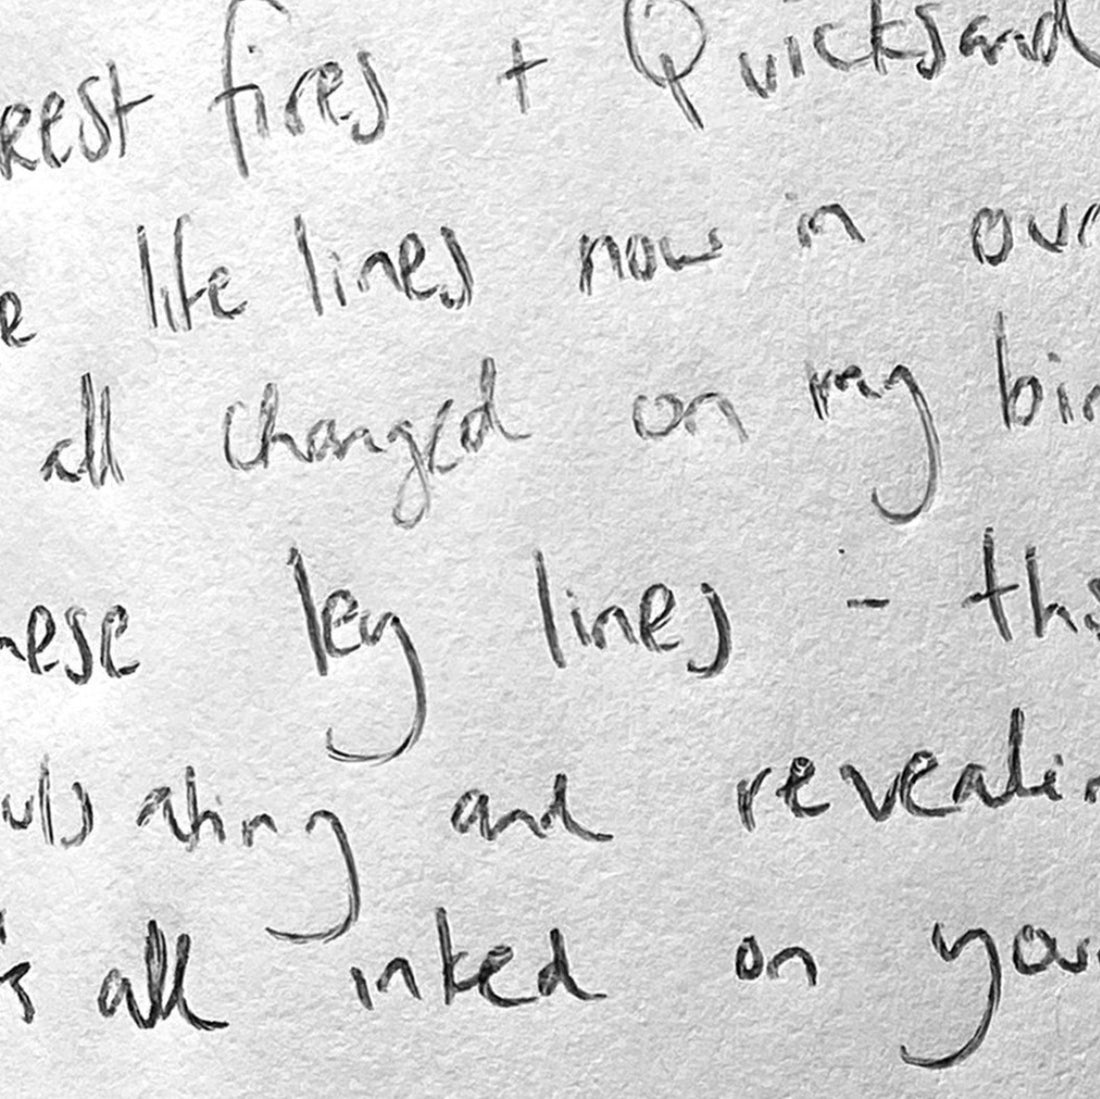 rest fires + Quicksand
e life lines now in our
all changed on my bir
hese ley lines - tho
pulsating and revealin
's all inked on your